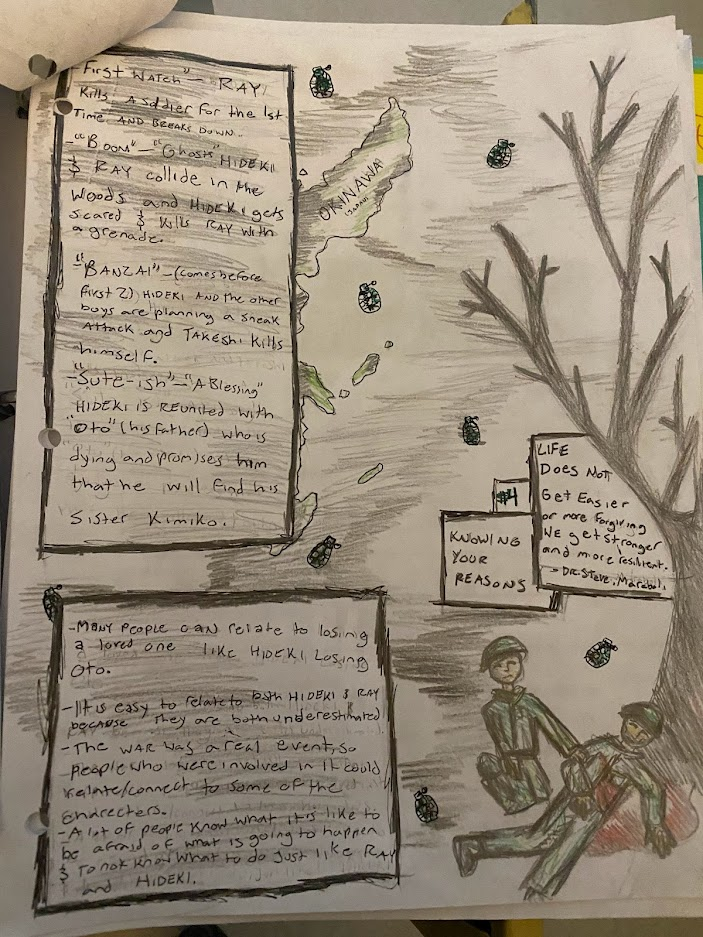 "First Watch" - RAY
Kills A Soldier for the 1st
Time, AND BREAKS DOWN.
-"BOOM" - "Ghosts" HIDEKI
& RAY collide in the
woods and HIDEKI gets
scared & kills RAY with
a grenade.
-"BANZAI" - (comes before
first 2) HIDEKI AND the other
boys are planning a sneak
Attack and TAKESHI Kills
himself.
-"Sute-ishi" - "A Blessing"
HIDEKI IS REUNITED with
"Oto" (his father) who is
dying and promises him
that he will find his
Sister Kimiko.
OKINAWA
(JAPAN)
LIFE
Does Not
Get Easier
or more Forgiving
WE get stronger
and more resilient.
- Dr. Steve. Maraboli.
#4
KNOWING
YOUR
REASONS
-MANY PEOPLE can relate to losing
a loved one like HIDEKI LOSING
OTO.
-It is easy to relate to both HIDEKI & RAY
because they are both underestimated
-The WAR was a real event, so
people who were involved in it could
relate/connect to some of the
charecters.
-A lot of people know what it is like to
be afraid of what is going to happen
& To not know what to do just like RAY
and HIDEKI.